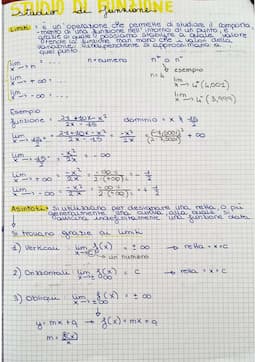 STUDIO DI FUNZIONE
Limiti = è un'operazione che permette di studiare il comporta
-mento di una funzione nell'intorno di un punto, e
grazie ai quali è possibile stabilire a quale valore
tende la funzione man mano che i valori della
variabile indipendente si approssimano a
quel punto
lim x→n n = numero n⁺ o n⁻
lim x→+∞ esempio
n=4 lim x→4⁺ (4,001)
lim x→-∞ lim x→4⁻ (3,999)
Esempio
funzione =
dominio =
lim x→+∞ = -x²/2x = -∞
lim x→-∞ = -x²/2x
Asintoti = si utilizzano per designare una retta, o più
generalmente una curva alla quale si
avvicina indefinitamente una funzione data
Si trovano grazie ai limiti
1) Verticali lim f(x) = ±∞ → retta = x=c
un numero
2) Orizzontali lim x→±∞ f(x) = c → retta = x=c
3) Obliqui lim x→±∞ f(x) = ±∞
y=mx+q → f(x)=mx+q
m = f(x)/x